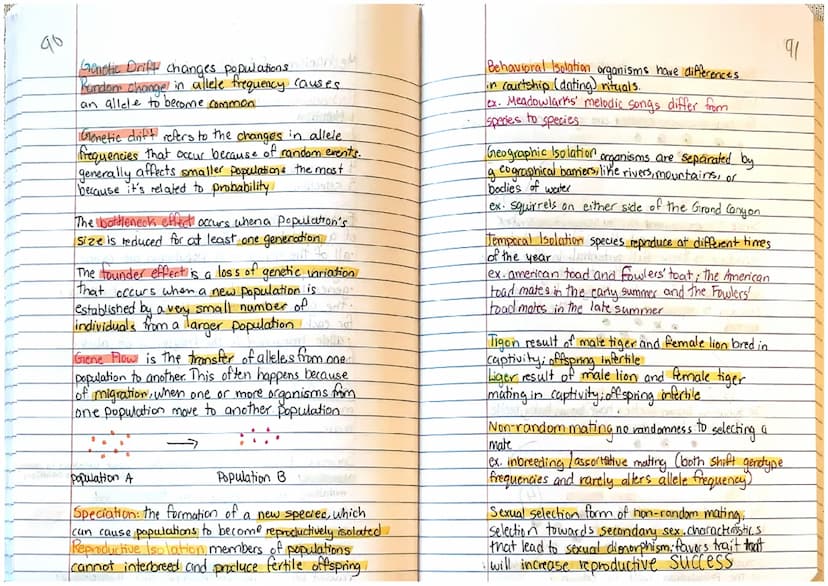 90
Genetic Drift changes populations
Random change in allele frequency causes
an allele to become common
Genetic drift refers to the changes in allele
frequencies that occur because of random events.
generally affects smaller populations the most
because it's related to probability
The bottleneck effect occurs when a population's
size is reduced for at least one generation
The founder effect is a loss of genetic variation
that occurs when a new population is
established by a very small number of
individuals from a larger population
Gene Flow is the transfer of alleles from one
population to another. This often happens because
of migration, when one or more organisms from
one population move to another population
population A Population B
Speciation: the formation of a new species, which
can cause populations to become reproductively isolated
Reproductive Isolation members of populations
cannot interbreed and produce fertile offspring
91
Behavioral Isolation organisms have differences
in courtship (dating) rituals.
ex. Meadowlarks' melodic songs differ from
species to species
Geographic Isolation organisms are separated by
geographical barriers, like rivers, mountains, or
bodies of water
ex. squirrels on either side of the Grand Canyon
Temporal Isolation species reproduce at different times
of the year
ex. american toad and Fowlers' toat; The American
toad mates in the early summer and the Fowlers'
toad mates in the late summer
Tigon result of male tiger and female lion bred in
captivity; offspring infertile
Liger result of male lion and female tiger
mating in captivity; offspring infertile
Non-random mating no randomness to selecting a
mate
ex. inbreeding / assortative mating (both shift genotype
frequencies and rarely alters allele frequency)
Sexual selection form of non-random mating;
selection towards secondary sex characteristics
that lead to sexual dimorphism. favors trait that
will increase reproductive success